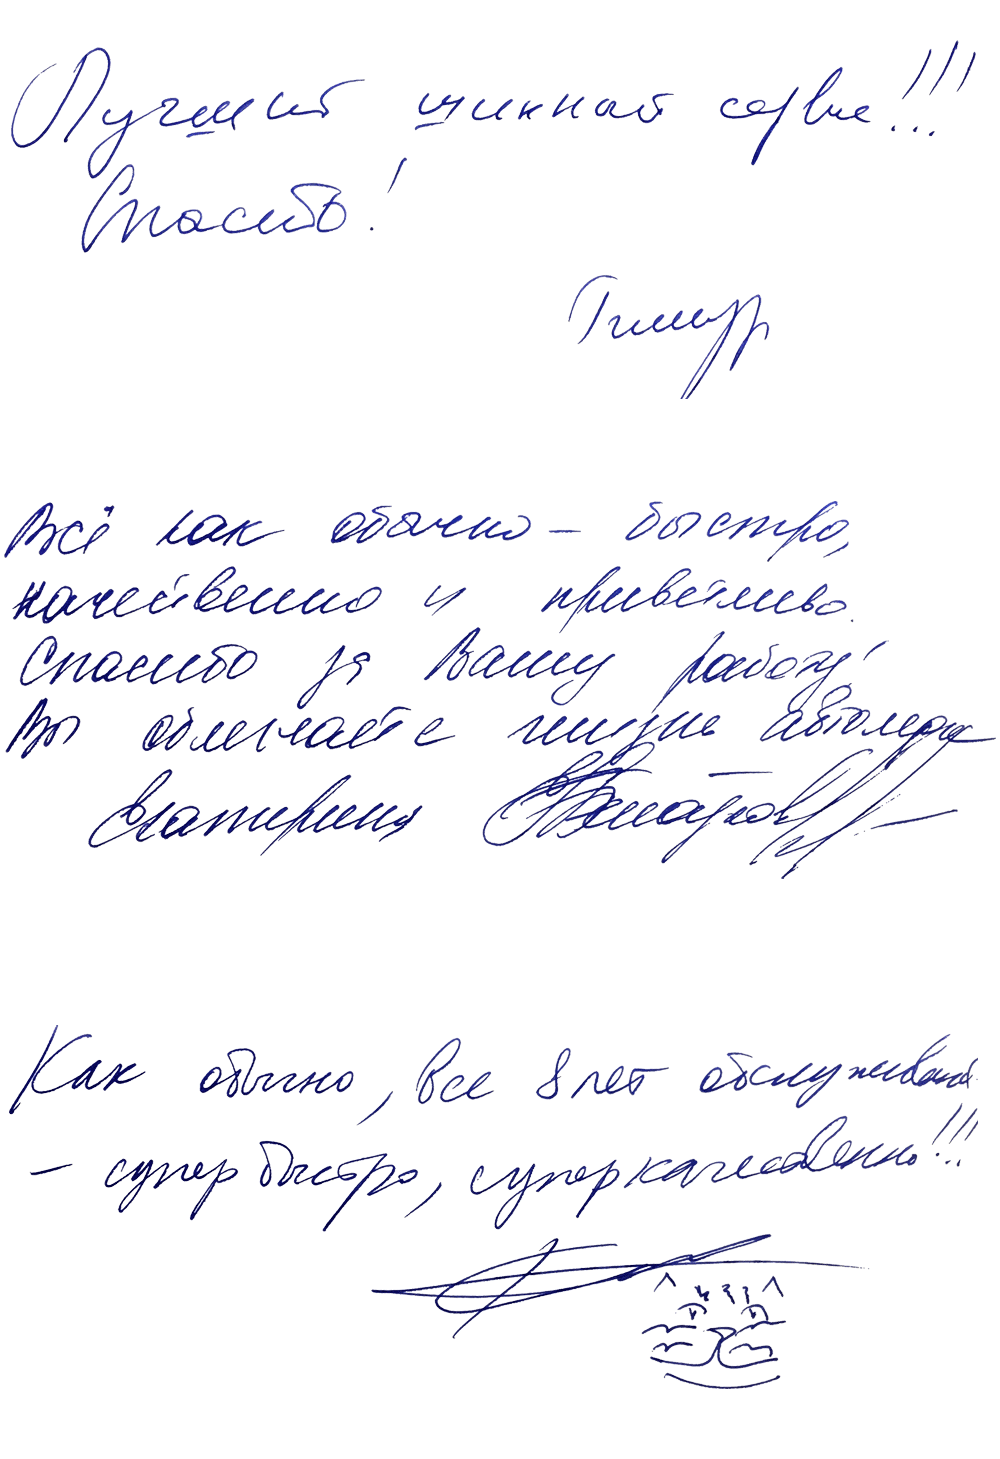 Лучший шинный сервис!!!
Спасибо!
Тимур
Всё как обычно – быстро,
качественно и приветливо.
Спасибо за Вашу работу!
Вы облегчаете жизнь автоледи
Екатерина
Как обычно, все 8 лет обслуживания
– супер быстро, супер качественно!!!